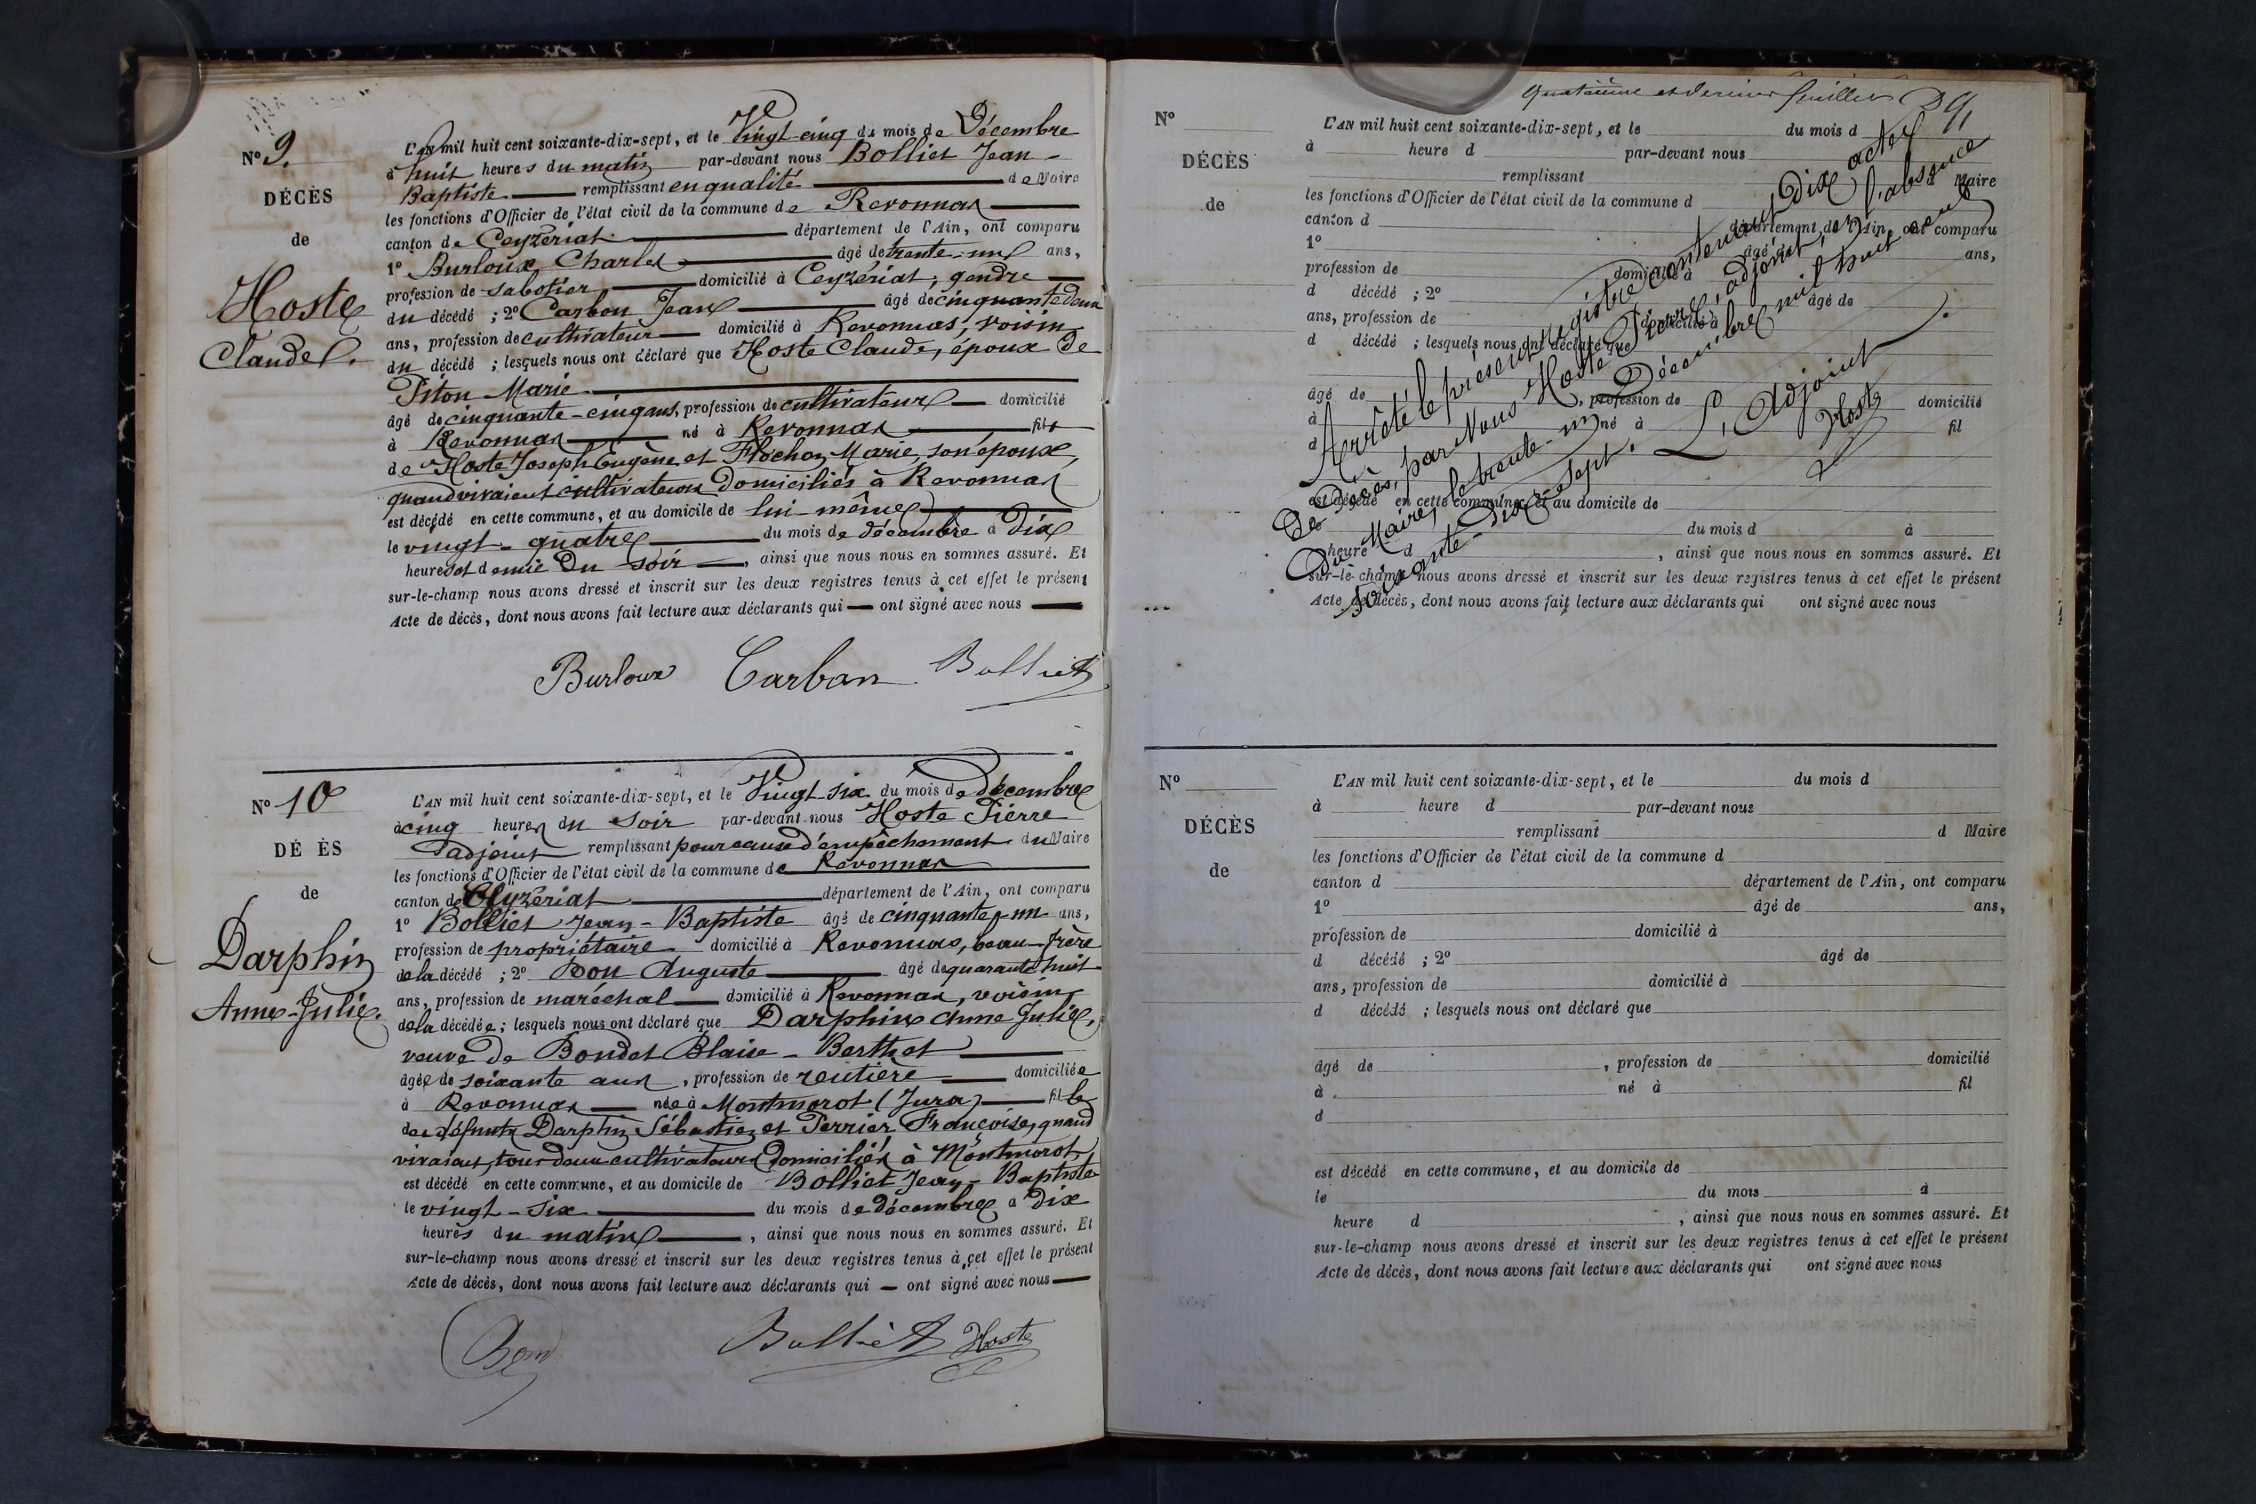 N° 9.
DÉCÈS
de
Hoste
Claude.
L'AN mil huit cent soixante-dix-sept, et le Vingt cinq du mois de Décembre
à huit heures du matin par-devant nous Bolliet Jean-
Baptiste remplissant en qualité de Maire
les fonctions d'Officier de l'état civil de la commune de Revonnas
canton de Ceyzériat département de l'Ain, ont comparu
1° Burloux Charles âgé de trente-un ans,
profession de sabotier domicilié à Ceyzériat, gendre
du décédé ; 2° Carbon Jean âgé de cinquante deux
ans, profession de cultivateur domicilié à Revonnas, voisin
du décédé ; lesquels nous ont déclaré que Hoste Claude, époux de
Piton Marie
âgé de cinquante-cinq ans, profession de cultivateur domicilié
à Revonnas né à Revonnas fils
de Hoste Joseph Eugène et Flochon Marie, son épouse,
quand vivaient cultivateurs domiciliés à Revonnas
est décédé en cette commune, et au domicile de lui-même
le vingt-quatre du mois de décembre à dix
heures et demie du soir, ainsi que nous nous en sommes assuré. Et
sur-le-champ nous avons dressé et inscrit sur les deux registres tenus à cet effet le présent
Acte de décès, dont nous avons fait lecture aux déclarants qui ont signé avec nous
Burloux Carban Bolliet
N° 10
DÉ ÈS
de
Darphin
Anne-Julie.
L'AN mil huit cent soixante-dix-sept, et le Vingt six du mois de décembre
à cinq heures du soir par-devant nous Hoste Pierre
adjoint remplissant pour cause d'empêchement du Maire
les fonctions d'Officier de l'état civil de la commune de Revonnas
canton de Ceyzériat département de l'Ain, ont comparu
1° Bolliet Jean-Baptiste âgé de cinquante-un ans,
profession de propriétaire domicilié à Revonnas, beau-frère
de la décédé ; 2° Bon Auguste âgé de quarante huit
ans, profession de maréchal domicilié à Revonnas, voisin
de la décédée ; lesquels nous ont déclaré que Darphin Anne Julie,
veuve de Bondet Blaise-Berthet
âgée de soixante ans, profession de rentière domiciliée
à Revonnas née à Montmorot (Jura) fille
des défunts Darphin Sébastien et Perrier Françoise, quand
vivaient, tous deux cultivateurs domiciliés à Montmorot
est décédé en cette commune, et au domicile de Bolliet Jean-Baptiste
le vingt-six du mois de décembre à dix
heures du matin, ainsi que nous nous en sommes assuré. Et
sur-le-champ nous avons dressé et inscrit sur les deux registres tenus à cet effet le présent
Acte de décès, dont nous avons fait lecture aux déclarants qui ont signé avec nous
Bon Bolliet Hoste
Quatrième et dernier feuillet
N°
DÉCÈS
de
L'AN mil huit cent soixante-dix-sept, et le du mois d
à heure d par-devant nous
remplissant d Maire
les fonctions d'Officier de l'état civil de la commune d
canton d département de l'Ain, ont comparu
1° âgé de ans,
profession de domicilié à
d décédé ; 2° âgé de
ans, profession de domicilié à
d décédé ; lesquels nous ont déclaré que
âgé de , profession de domicilié
à né à fil
d
est décédé en cette commune, et au domicile de
le du mois d à
heure d , ainsi que nous nous en sommes assuré. Et
sur-le-champ nous avons dressé et inscrit sur les deux registres tenus à cet effet le présent
Acte de décès, dont nous avons fait lecture aux déclarants qui ont signé avec nous
Arrêté le présent registre contenant dix actes
de Décès, par Nous Hoste Pierre, adjoint, en l'absence
du Maire, le trente-un Décembre mil huit cent
soixante-dix-sept.
L'Adjoint
Hoste
N°
DÉCÈS
de
L'AN mil huit cent soixante-dix-sept, et le du mois d
à heure d par-devant nous
remplissant d Maire
les fonctions d'Officier de l'état civil de la commune d
canton d département de l'Ain, ont comparu
1° âgé de ans,
profession de domicilié à
d décédé ; 2° âgé de
ans, profession de domicilié à
d décédé ; lesquels nous ont déclaré que
âgé de , profession de domicilié
à né à fil
d
est décédé en cette commune, et au domicile de
le du mois à
heure d , ainsi que nous nous en sommes assuré. Et
sur-le-champ nous avons dressé et inscrit sur les deux registres tenus à cet effet le présent
Acte de décès, dont nous avons fait lecture aux déclarants qui ont signé avec nous